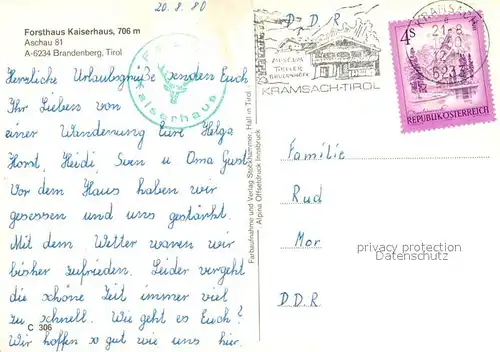 20.8.80
Forsthaus Kaiserhaus, 706 m
Aschau 81
A-6234 Brandenberg, Tirol
Kaiserhaus
Herzliche Urlaubsgrüße senden Euch
Ihr Lieben von
einer Wanderung Eure Helga
Horst, Heidi, Sven u Oma Gust
Vor dem Haus haben wir
gesessen und uns gestärkt.
Mit dem Wetter waren wir
bisher zufrieden. Leider vergeht
die schöne Zeit immer viel
zu schnell. Wie geht es Euch?
Wir hoffen so gut wie uns hier.
C 306
Farbaufnahme und Verlag Stockhammer, Hall in Tirol
Alpina Offsetdruck Innsbruck
D.D.R
MUSEUM
TIROLER
BAUERNHÖFE
KRAMSACH-TIROL
KRAMSACH
21.-8.
80
6233
4S
REPUBLIK ÖSTERREICH
Familie
Rud
Mor
D.D.R
privacy protection
Datenschutz